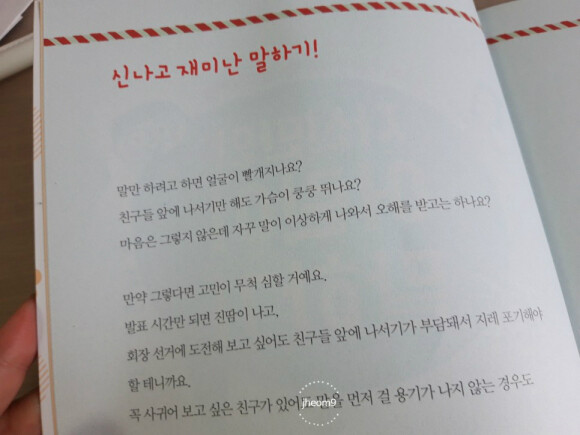 신나고 재미난 말하기!
말만 하려고 하면 얼굴이 빨개지나요?
친구들 앞에 나서기만 해도 가슴이 쿵쿵 뛰나요?
마음은 그렇지 않은데 자꾸 말이 이상하게 나와서 오해를 받고는 하나요?
만약 그렇다면 고민이 무척 심할 거예요.
발표 시간만 되면 진땀이 나고,
회장 선거에 도전해 보고 싶어도 친구들 앞에 나서기가 부담돼서 지레 포기해야
할 테니까요.
꼭 사귀어 보고 싶은 친구가 있어도 말을 먼저 걸 용기가 나지 않는 경우도
jheom9